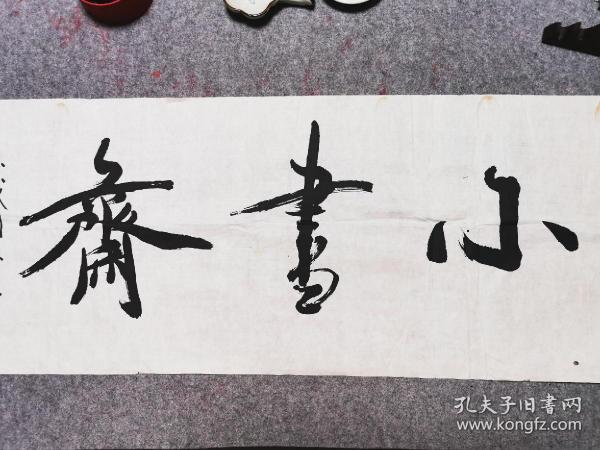 小書齋
孔夫子旧書网
www.kongfz.com